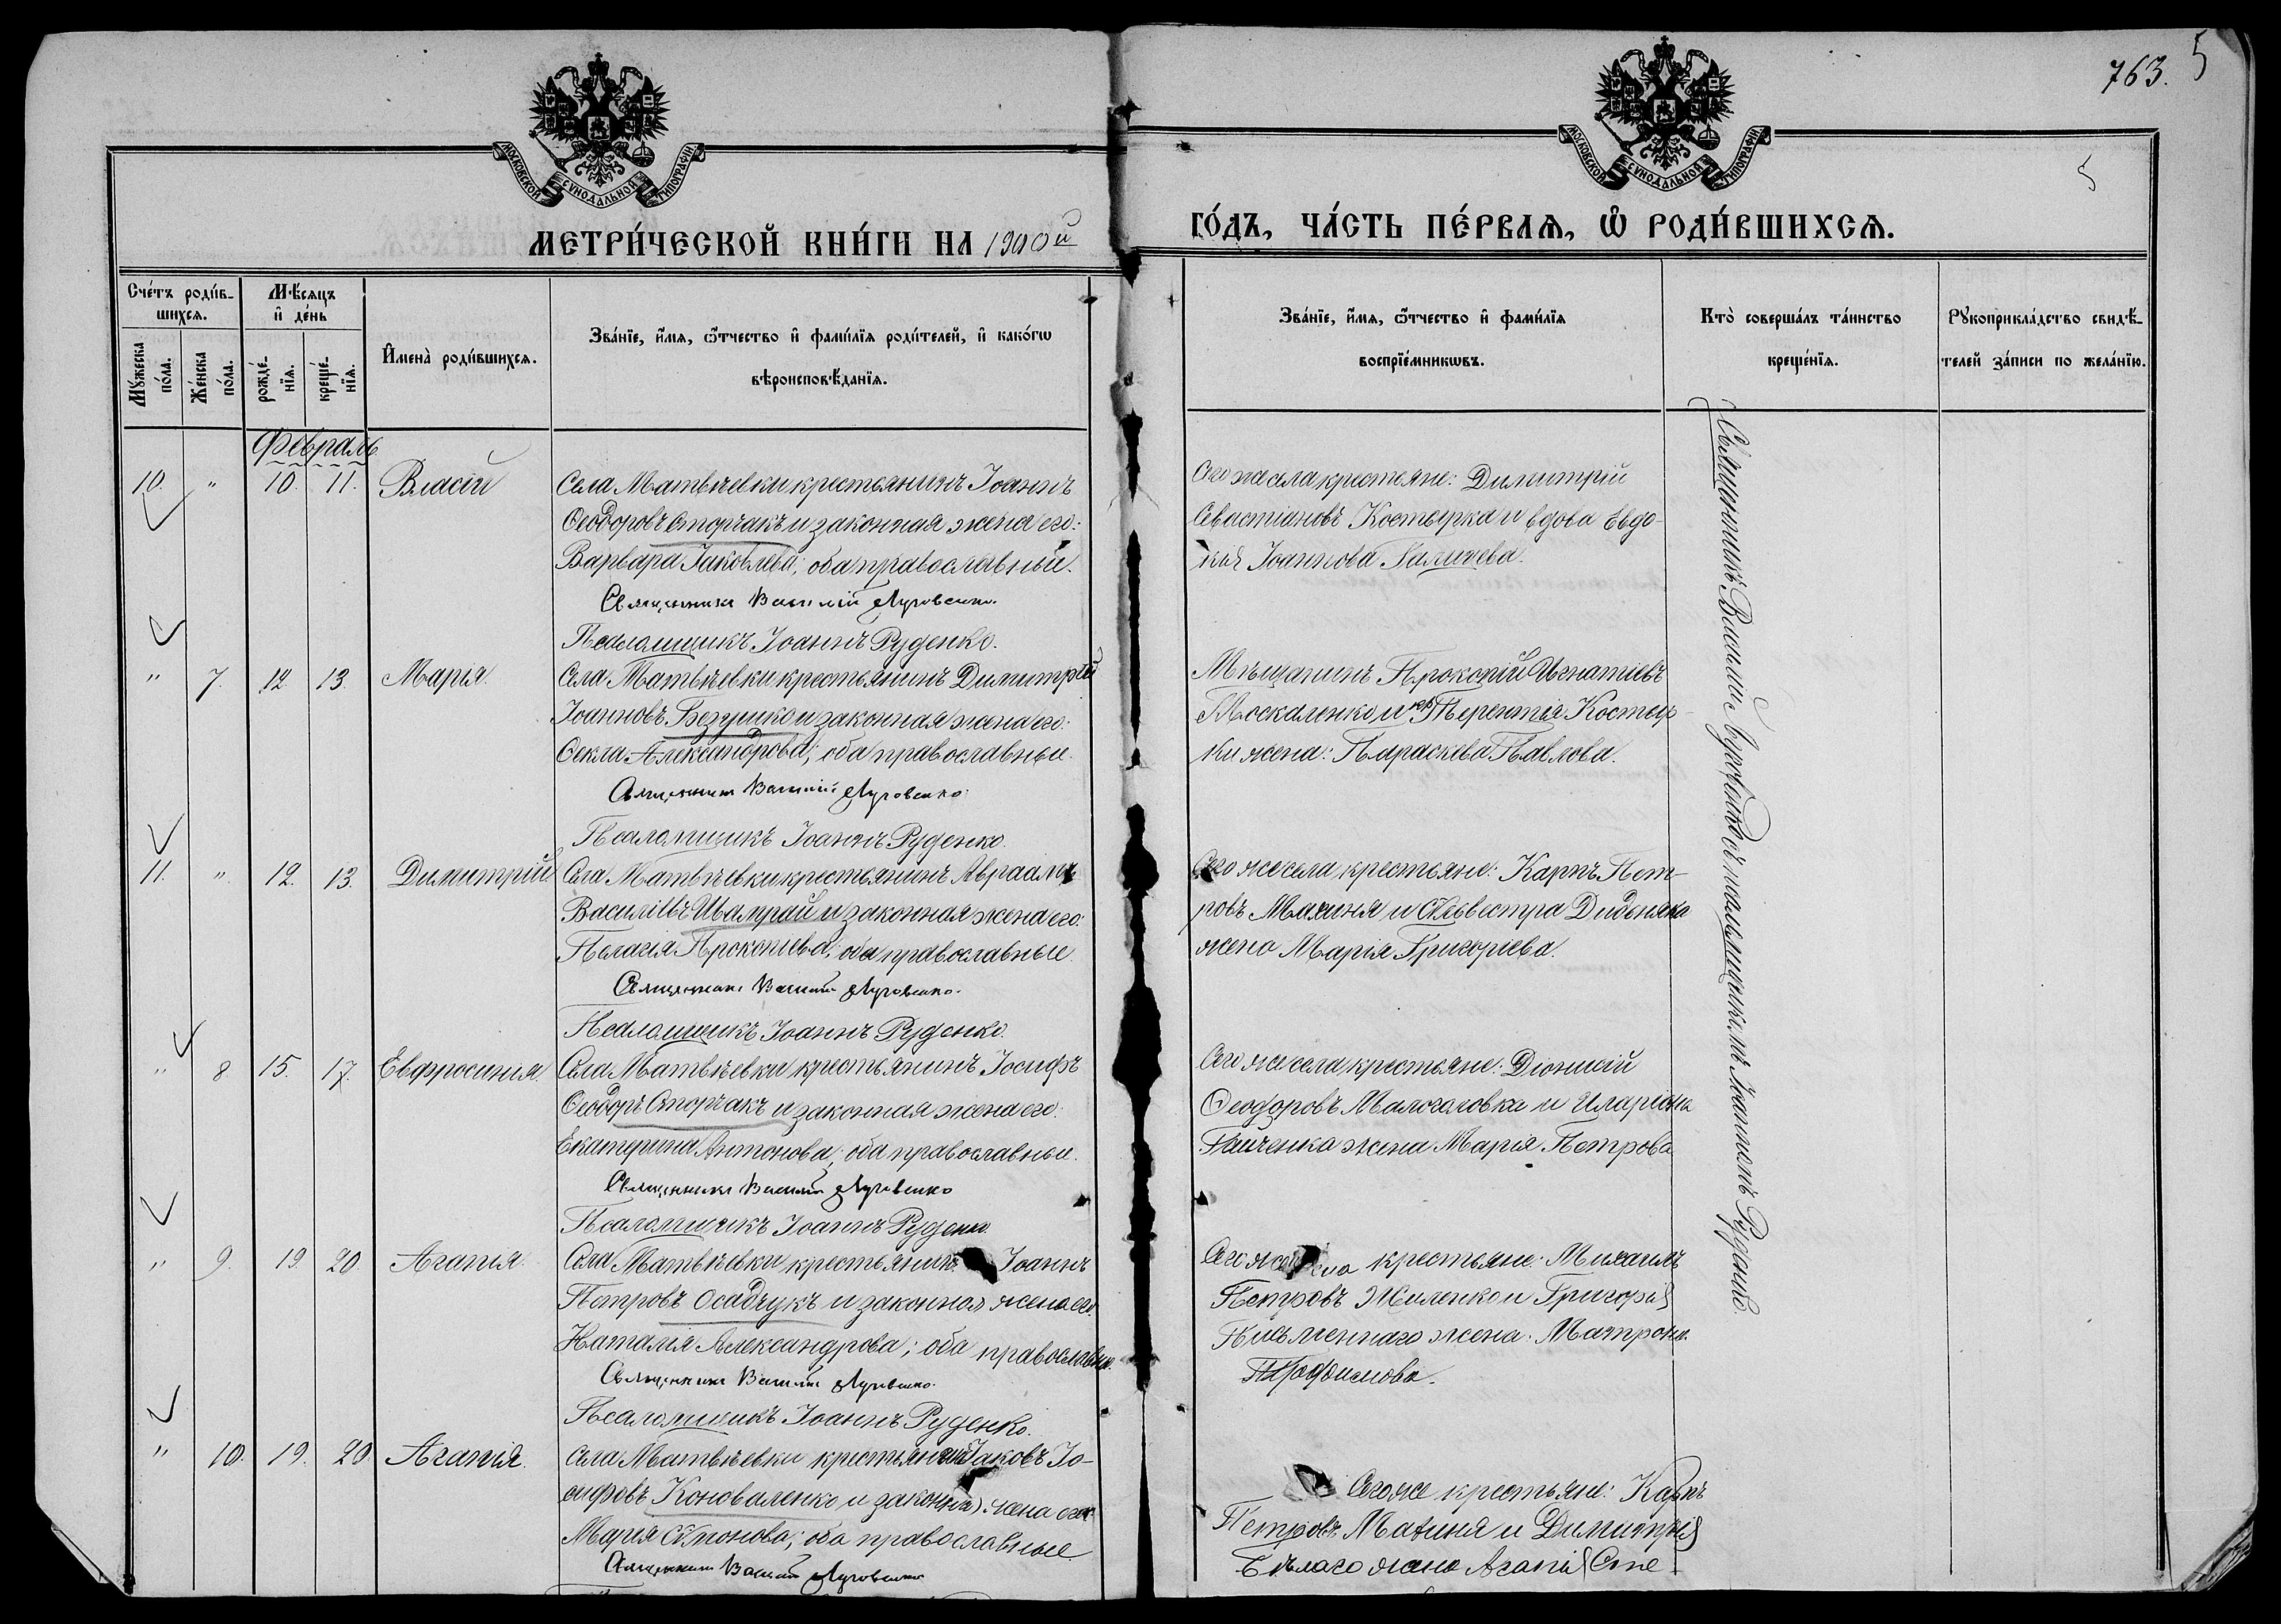 763. 5
5
МОСКОВСКОЙ СѴНОДАЛЬНОЙ ТИПОГРАФІИ
МОСКОВСКОЙ СѴНОДАЛЬНОЙ ТИПОГРАФІИ
МЕТРИ́ЧЕСКОЙ КНИ́ГИ НА 1900й
ГО́ДЪ, ЧА́СТЬ ПЕ́РВАѦ, Ѡ҆ РОДИ́ВШИХСѦ.
Сче́тъ роди́в-
шихсѧ.
Мѣ́сѧцъ
и҆ де́нь
Мꙋ́жеска
по́ла.
Же́нска
по́ла.
рожде́-
нїѧ.
креще́-
нїѧ.
И҆мена̀ роди́вшихсѧ.
Зва́нїе, и҆́мѧ, ѻ҆́тчество и҆ фамі́лїѧ роди́телей, и҆ како́гѡ
вѣроисповѣ́данїѧ.
Зва́нїе, и҆́мѧ, ѻ҆́тчество и҆ фамі́лїѧ
воспрїе́мникѡвъ.
Кто̀ соверша́лъ та́инство
креще́нїѧ.
Рꙋкоприкла́дство свидѣ́-
телей за́писи по жела́нїю.
Февраль
10. " 10. 11. Власій Села Матвѣевки крестьянинъ Іоаннъ
Ѳеодоровъ Сторчакъ и законная жена его:
Варвара Іаковлева; оба православные.
Священникъ Василій Луговенко.
Псаломщикъ Іоаннъ Руденко.
Сего же села крестьяне: Димитрій
Севастіановъ Костырка и вдова Евдо-
кія Іоаннова Галичева.
" 7. 12 13. Марія. Села Матвѣевки крестьянинъ Димитрій
Іоанновъ Безушко и законная жена его:
Ѳекла Александрова; оба православные.
Священникъ Василій Луговенко.
Псаломщикъ Іоаннъ Руденко.
Мѣщанинъ Игнатіевъ
Москаленко и кр. Терентія Костыр-
ки жена: Параскева Павлова.
11. " 12. 13. Димитрій Села Матвѣевки крестьянинъ Авраамъ
Василіевъ Шамрай и законная жена его:
Пелагія Прокопіева; оба православные.
Священникъ Василій Луговенко.
Псаломщикъ Іоаннъ Руденко.
Сего же села крестьяне: Карпъ Пет-
ровъ Махиня и Сильвестра Диденяка
жена Марія Григоріева.
" 8 15. 17. Евфросинія. Села Матвѣевки крестьянинъ Іосифъ
Ѳеодоръ Сторчакъ и законная жена его:
Екатерина Антонова; оба православные.
Священникъ Василій Луговенко
Псаломщикъ Іоаннъ Руденко.
Сего же села крестьяне: Діонисій
Ѳеодоровъ Малоголовка и Иларіона
жена Марія Петрова
" 9. 19. 20 Агапія. Села Матвѣевки крестьянинъ Іоаннъ
Петровъ Осадчукъ и законная жена его:
Наталія Александрова; оба православные.
Священникъ Василій Луговенко.
Псаломщикъ Іоаннъ Руденко.
Сего же села крестьяне: Михаилъ
Петровъ Жиленко и Григорія
Письменнаго жена: Матрона
Трофимова.
" 10. 19. 20. Агапія. Села Матвѣевки крестьянинъ Іаковъ Іо-
сифовъ Коноваленко и законная жена его:
Марія Симонова; оба православные.
Священникъ Василій Луговенко
Сего же крестьяне: Карпъ
Петровъ Махиня и Димитрія
Бѣлаго жена Агапія Сте
Священникъ Василій Луговенко съ псаломщикомъ Іоанномъ Руденко.